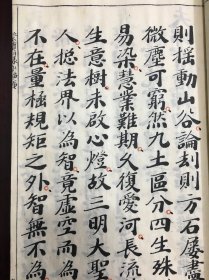 則揺動山谷論刧則方石屡盡
微塵可窮然九土區分四生殊
易染慧業難期久復愛河長流
生意樹未啟心燈故三明大聖
人捴法界以為智竟虚空而為
不在量樞規矩之外智無不為